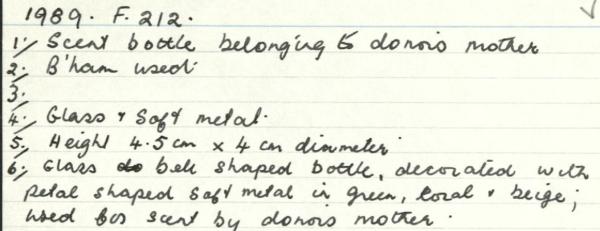 1989. F. 212.
1. Scent bottle belonging to donors mother
2. B'ham used.
3.
4. Glass & Soft metal.
5. Height 4.5cm x 4 cm diameter
6. Glass bell shaped bottle, decorated with
petal shaped soft metal in green, coral & beige;
used for scent by donors mother.